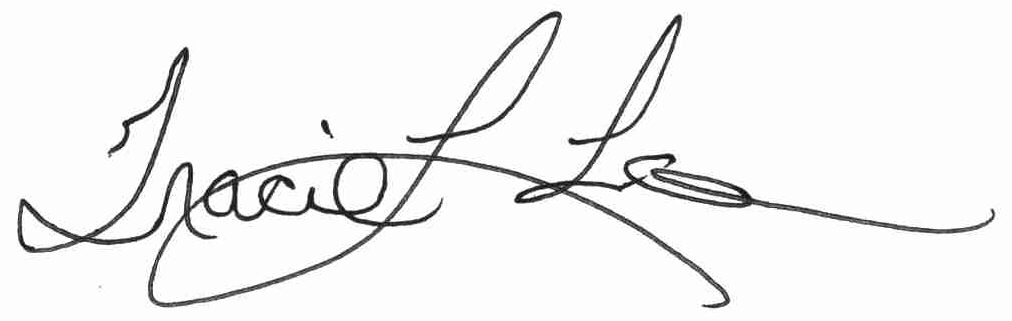 Tracie L Lee